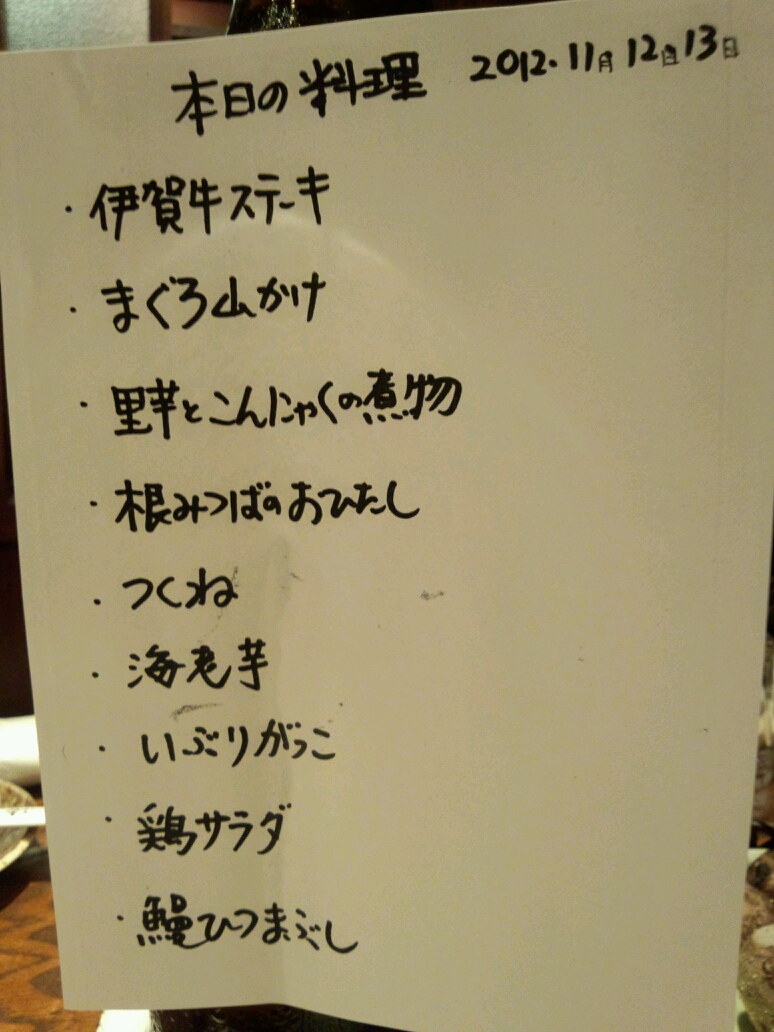 本日の料理 2012.11月12日13日
・伊賀牛ステーキ
・まぐろ山かけ
・里芋とこんにゃくの煮物
・根みつばのおひたし
・つくね
・海老芋
・いぶりがっこ
・鶏サラダ
・鰻ひつまぶし